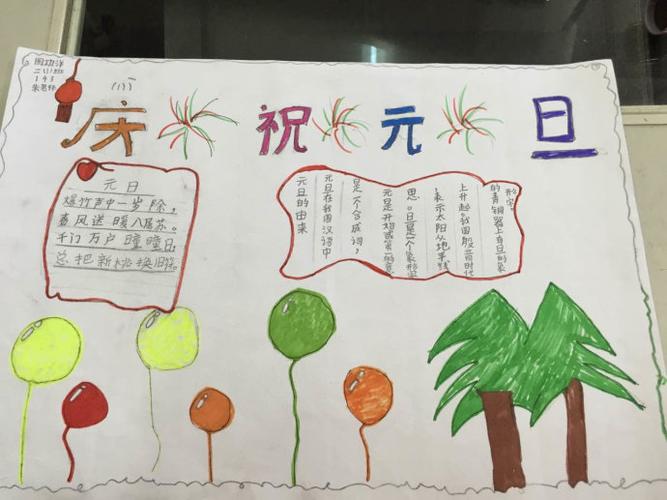 二(1)班
143
朱老师
庆祝元旦
元日
爆竹声中一岁除,
春风送暖入屠苏。
千门万户瞳瞳日
总把新桃换旧符。
元旦的由来
元旦在我国汉语中
是一个合成词,
元是开始或第一的意
思。旦是一个象形字
表示太阳从地平线
上升起。我国殷商时代
的青铜器上有旦的象
形字。